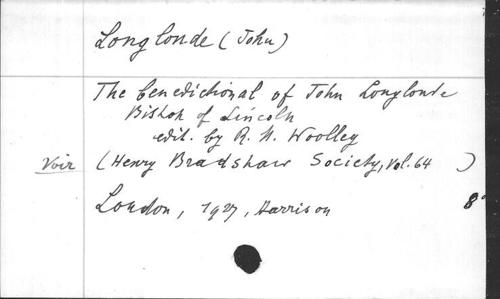 Longlonde (John)
The benedictional of John Longlonde
Bishop of Lincoln
edit. by R. M. Woolley
Voir (Henry Bradshaw Society, Vol. 64 )
London, 1927, Harrison 8°